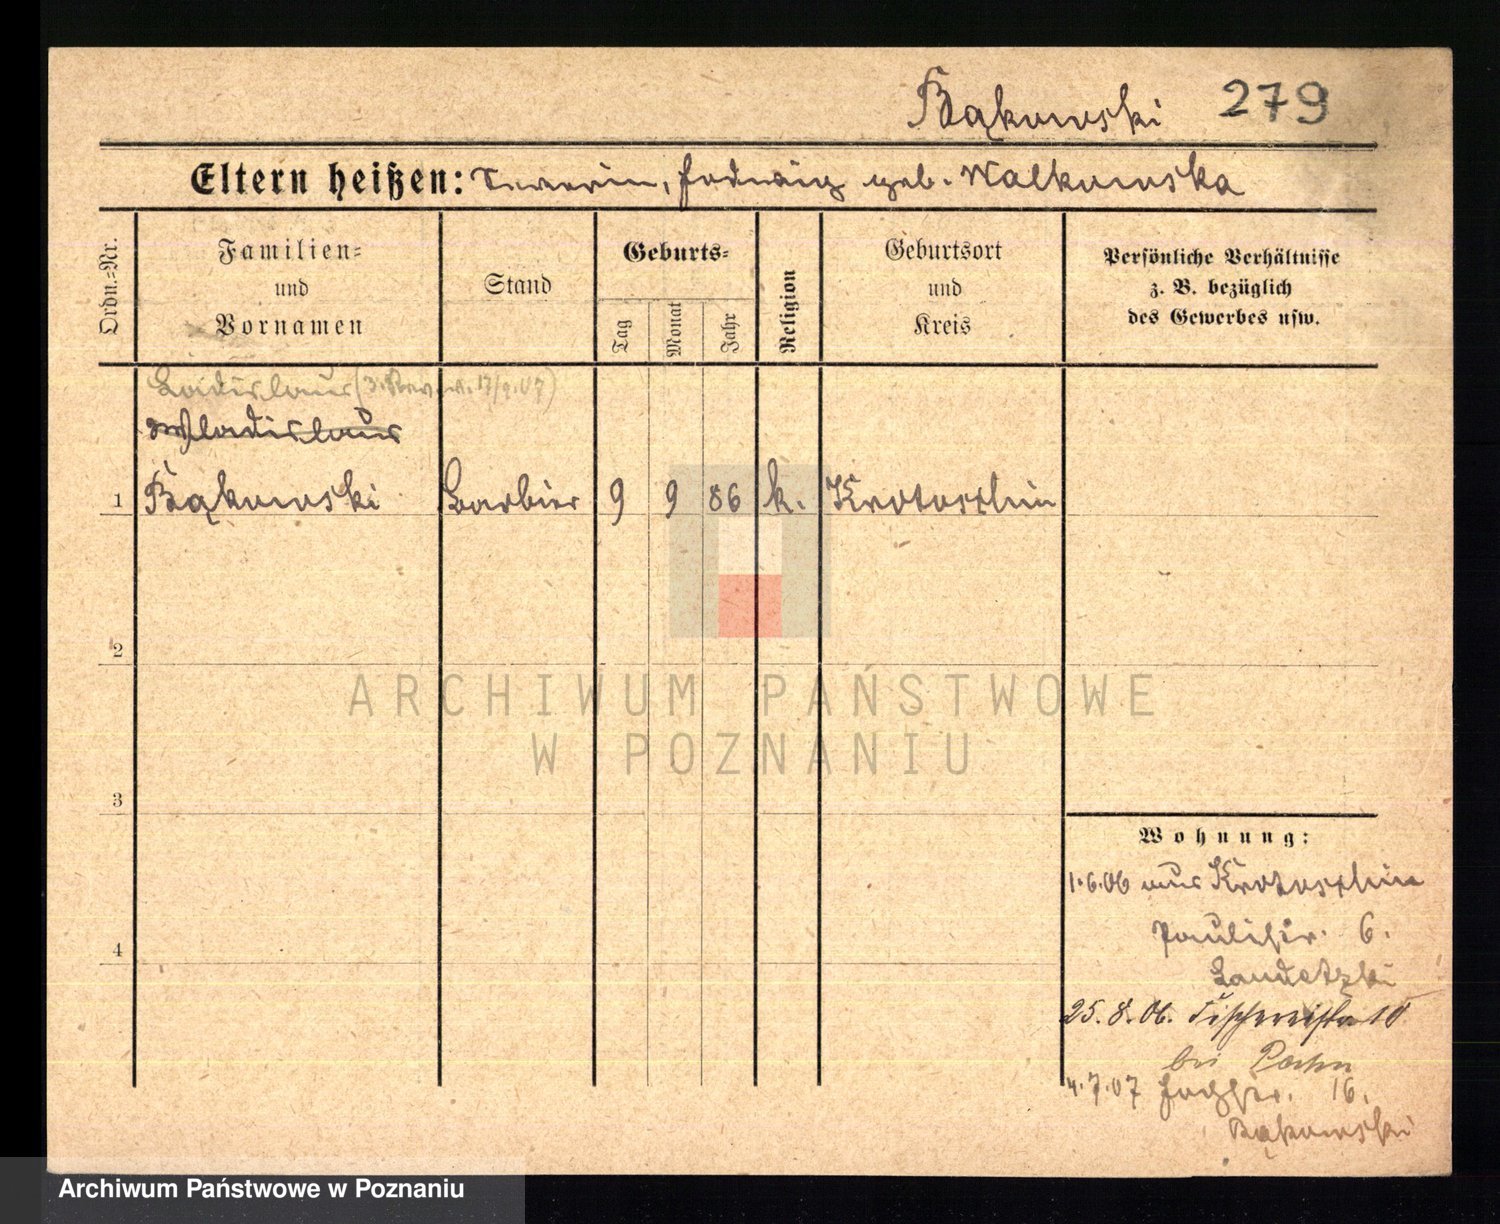 Bąkowski 279
Eltern heißen: Severin, Hedwig geb. Walkowska
Ordn.=Nr.
Familien=
und
Vornamen
Stand
Geburts=
Tag
Monat
Jahr
Religion
Geburtsort
und
Kreis
Persönliche Verhältnisse
z. B. bezüglich
des Gewerbes usw.
Ladislaus (
Wladislaus
1 Bąkowski Barbier 9 9 86 k. Krotoschin
2
3
4
Wohnung:
1.6.06 aus Krotoschin
Paulistr. 6.
25.8.06. Fischereistr 10
bei
4.7.07 16.
Bąkowski
ARCHIWUM PAŃSTWOWE
W POZNANIU
Archiwum Państwowe w Poznaniu